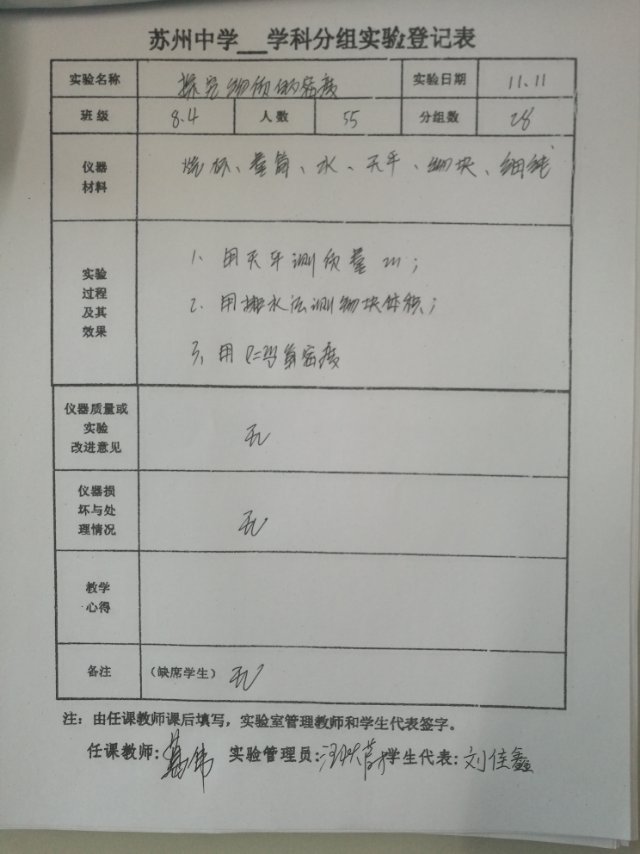 苏州中学___学科分组实验登记表
实验名称 探究物质的密度 实验日期 11.11
班级 8.4 人数 55 分组数 28
仪器材料 烧杯、量筒、水、天平、物块、细线
实验过程及其效果
1. 用天平测质量m；
2. 用排水法测物块体积；
3. 用ρ=m/V算密度
仪器质量或实验改进意见 无
仪器损坏与处理情况 无
教学心得
备注 (缺席学生) 无
注：由任课教师课后填写，实验室管理教师和学生代表签字。
任课教师: 伟 实验管理员: 学生代表: 刘佳鑫